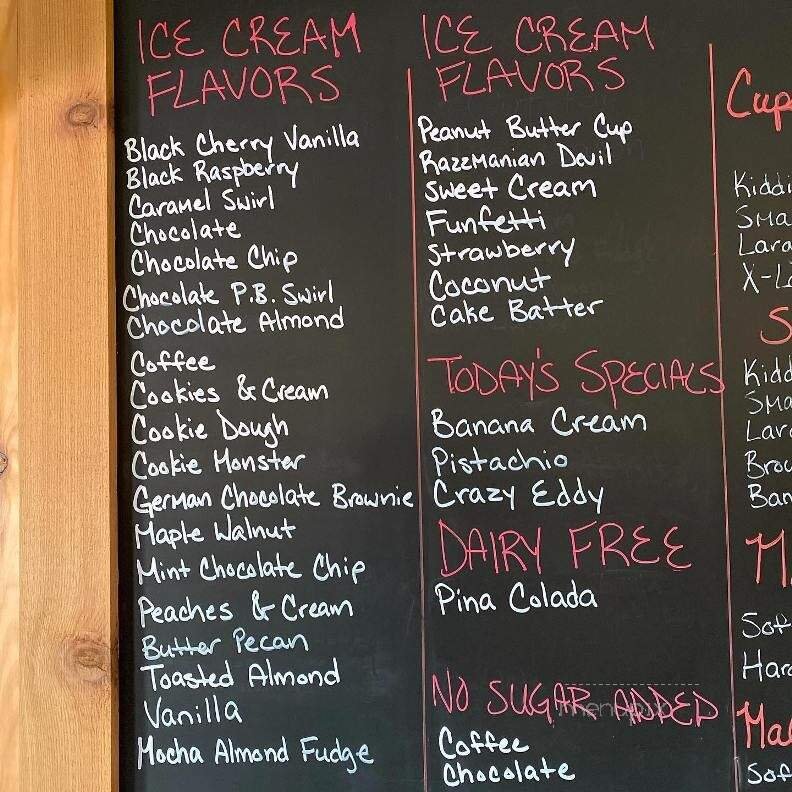 ICE CREAM
FLAVORS
Black Cherry Vanilla
Black Raspberry
Caramel Swirl
Chocolate
Chocolate Chip
Chocolate P.B. Swirl
Chocolate Almond
Coffee
Cookies & Cream
Cookie Dough
Cookie Monster
German Chocolate Brownie
Maple Walnut
Mint Chocolate Chip
Peaches & Cream
Butter Pecan
Toasted Almond
Vanilla
Mocha Almond Fudge
ICE CREAM
FLAVORS
Peanut Butter Cup
Razzmanian Devil
Sweet Cream
Funfetti
Strawberry
Coconut
Cake Batter
TODAY'S SPECIALS
Banana Cream
Pistachio
Crazy Eddy
DAIRY FREE
Pina Colada
NO SUGAR ADDED
menupix
Coffee
Chocolate
Cup
Kiddi
Sma
Lara
X-La
S
Kidd
Sma
Lar
Brow
Ban
M
Sof
Hard
Mal
Sof